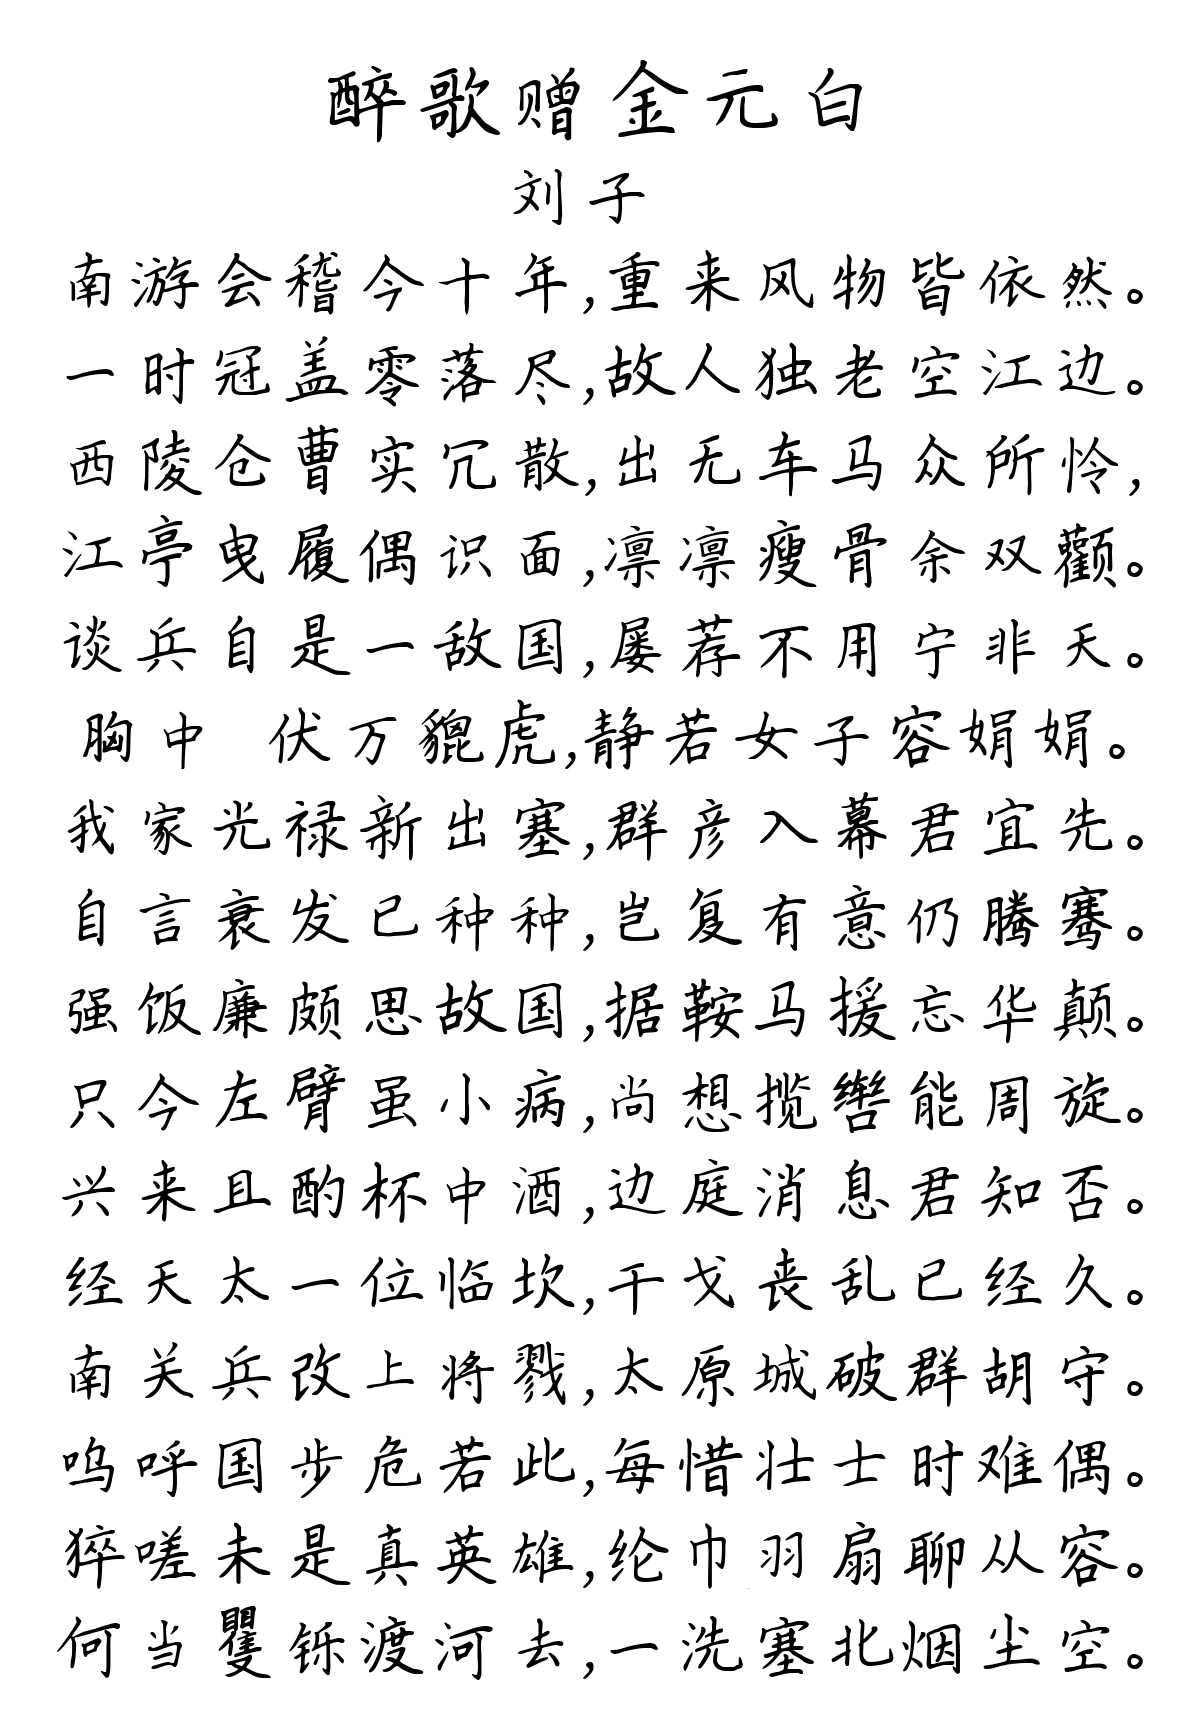 醉歌赠金元白
刘子
南游会稽今十年,重来风物皆依然。
一时冠盖零落尽,故人独老空江边。
西陵仓曹实冗散,出无车马众所怜,
江亭曳履偶识面,凛凛瘦骨余双颧。
谈兵自是一敌国,屡荐不用宁非天。
胸中 伏万貔虎,静若女子容娟娟。
我家光禄新出塞,群彦入幕君宜先。
自言衰发已种种,岂复有意仍腾骞。
强饭廉颇思故国,据鞍马援忘华颠。
只今左臂虽小病,尚想揽辔能周旋。
兴来且酌杯中酒,边庭消息君知否。
经天太一位临坎,干戈丧乱已经久。
南关兵改上将戮,太原城破群胡守。
呜呼国步危若此,每惜壮士时难偶。
猝嗟未是真英雄,纶巾羽扇聊从容。
何当矍铄渡河去,一洗塞北烟尘空。